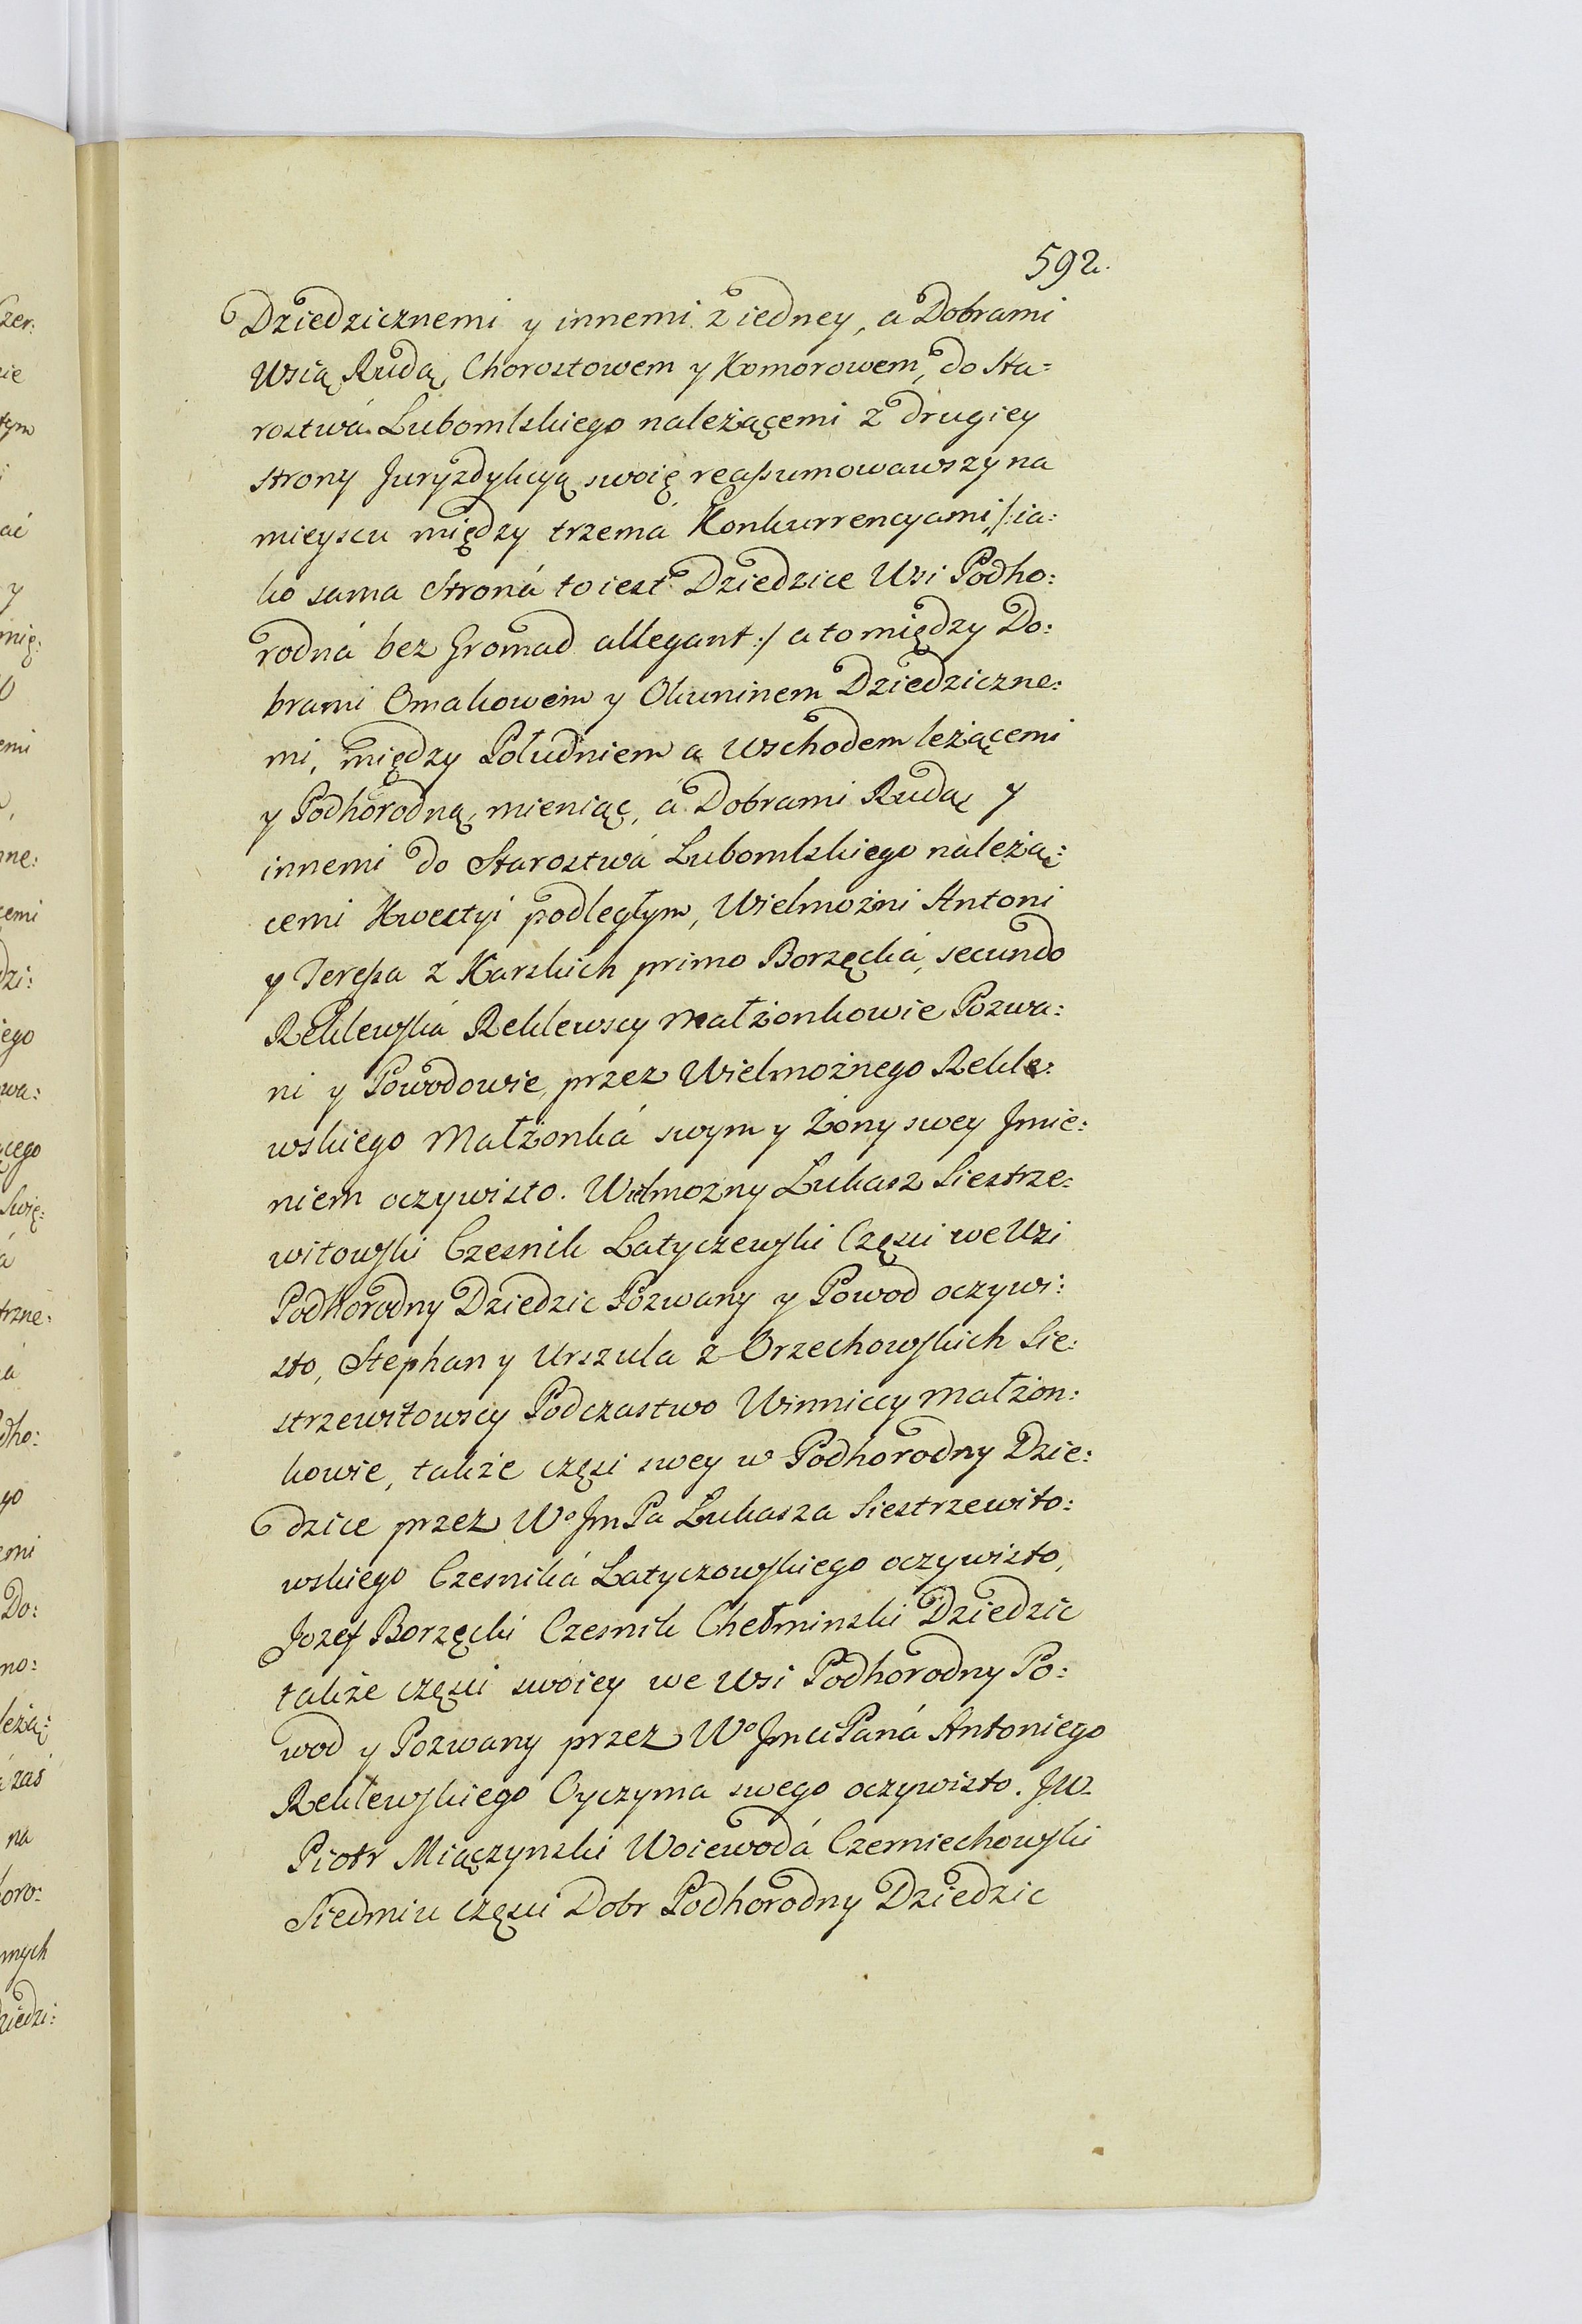 592.
Dziedzicznemi y innemi z iedney, a Dobrami
Wsią Rudą, Chorostowem y Komorowem, do Sta:
rostwá Lubomlskiego należącemi z drugiey
strony Juryzdykcyą swoię reassumowawszy na
mieyscu między trzemá Konkurrencyami /:ia:
ko sama Stroná to iest Dziedzice Wsi Podho:
rodná bez Gromad allegant:/ a to między Do:
brami Omakowem y Okuninem Dziedziczne:
mi, między Południem a Wschodem leżącemi
y Podhorodną, mieniąc, á Dobrami Rudą y
innemi do Starostwá Lubomlskiego náleżą:
cemi Kwestyi podległym, Wielmożni Antoni
y Teressa z Karskich primo Borzęcká, secundo
Reklewská Reklewscy Małżonkowie Pozwa:
ni y Powodowie, przez Wielmożnego Rekle:
wskiego Małżonká swym y Żony swey Jmie:
niem oczywisto. Wielmożny Łukasz Siestrze:
witowski Czesnik Latyczewski Częsci we Wsi
Podhorodny Dziedzic Pozwany y Powod oczywi:
sto, Stephan y Urszula z Orzechowskich Sie:
strzewitowscy Podczastwo Winniccy Małżon:
kowie, także częsi swey w Podhorodny Dzie:
dzice przez Wo JmPa Łukasza Siestrzewito:
wskiego Czesniká Latyczowskiego oczywisto,
Jozef Borzęcki Czesnik Chełminski Dziedzic
także częsci swoiey we Wsi Podhorodny Po:
wod y Pozwany przez Wo JmciPaná Antoniego
Reklewskiego Oyczyma swego oczywisto. JW
Piotr Miączynski Woiewodá Czerniechowski
Siedmiu częsci Dobr Podhorodny Dziedzic